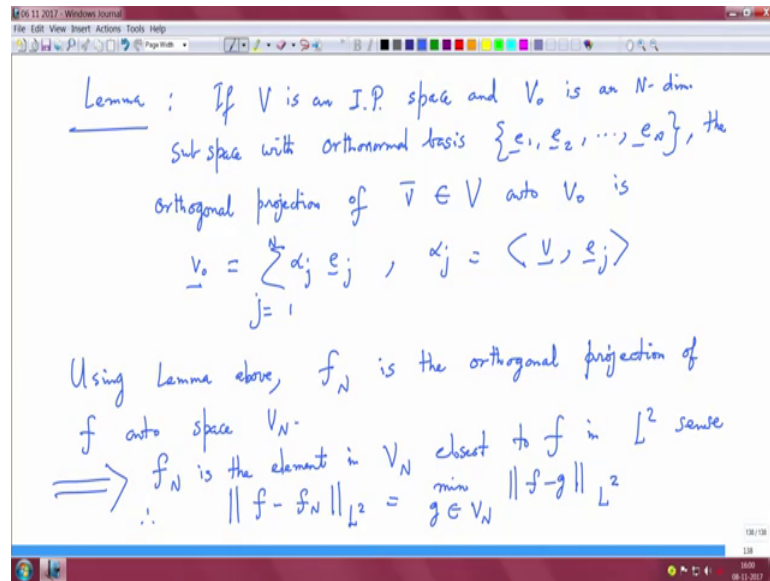 06 11 2017 - Windows Journal
File Edit View Insert Actions Tools Help
Page Width
Lemma : If V is an I.P. space and V₀ is an N-dim.
subspace with orthonormal basis {e₁, e₂, ..., e_N}, the
orthogonal projection of v̅ ∈ V onto V₀ is
v₀ = ∑_{j=1}^{N} α_j e_j , α_j = ⟨v, e_j⟩
Using Lemma above, f_N is the orthogonal projection of
f onto space V_N.
⟹ f_N is the element in V_N closest to f in L² sense
∴ ||f - f_N||_{L²} = min_{g ∈ V_N} ||f-g||_{L²}
138/138
138
16:00
08-11-2017